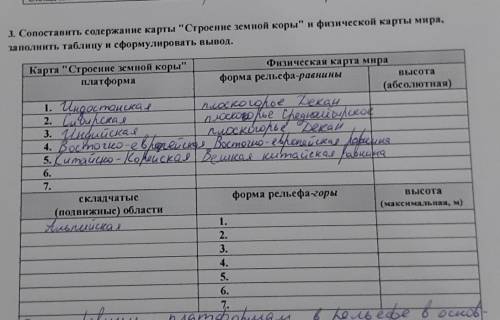 3. Сопоставить содержание карты "Строение земной коры" и физической карты мира,
заполнить таблицу и сформулировать вывод.
Карта "Строение земной коры" Физическая карта мира
платформа форма рельефа-равнины высота
(абсолютная)
1. Индостанская плоскогорье Декан
2. Сибирская плоскогорье Среднесибирское
3. Индийская плоскогорье Декан
4. Восточно-европейская Восточно-европейская равнина
5. Китайско-Корейская Великая китайская равнина
6.
7.
складчатые форма рельефа-горы высота
(подвижные) области (максимальная, м)
Альпийская 1.
2.
3.
4.
5.
6.
7.
платформам в рельефе в основ-